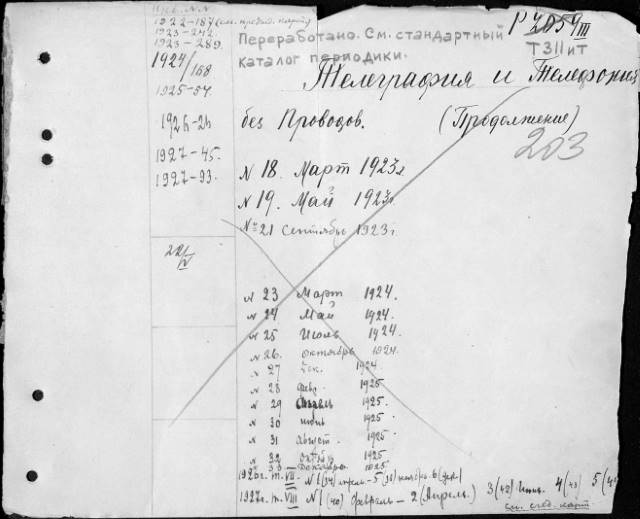 Инв. N.N
1922-187 (см. предыд. карт.)
1923-242.
1923-289.
1924/168
1925-54.
1926-26
1927-45.
1927-93.
22/V
Переработано. См. стандартный
каталог периодики.
Р 2059 III
Т311 ит
Телеграфия и Телефония
без Проводов. (Продолжение)
203
N 18. Март 1923г
N 19. Май 1923г.
N 21 Сентябрь 1923г
N 23 Март 1924.
N 24 Май 1924.
N 25 Июль 1924.
N 26. октябрь 1924.
N 27 Дек. 1924
N 28 февр. 1925
N 29 Апрель 1925.
N 30 июнь 1925
N 31 август. 1925
N 32 октябрь 1925
N 33 Декабрь 1925
1926г. т. VII- N 1(34) апрель-5(38) ноябрь 6 (дек)
1927г. т. VIII N 1(40) февраль - 2 (Апрель.) 3(42) Июнь. 4(43) 5(4
см. след. карт